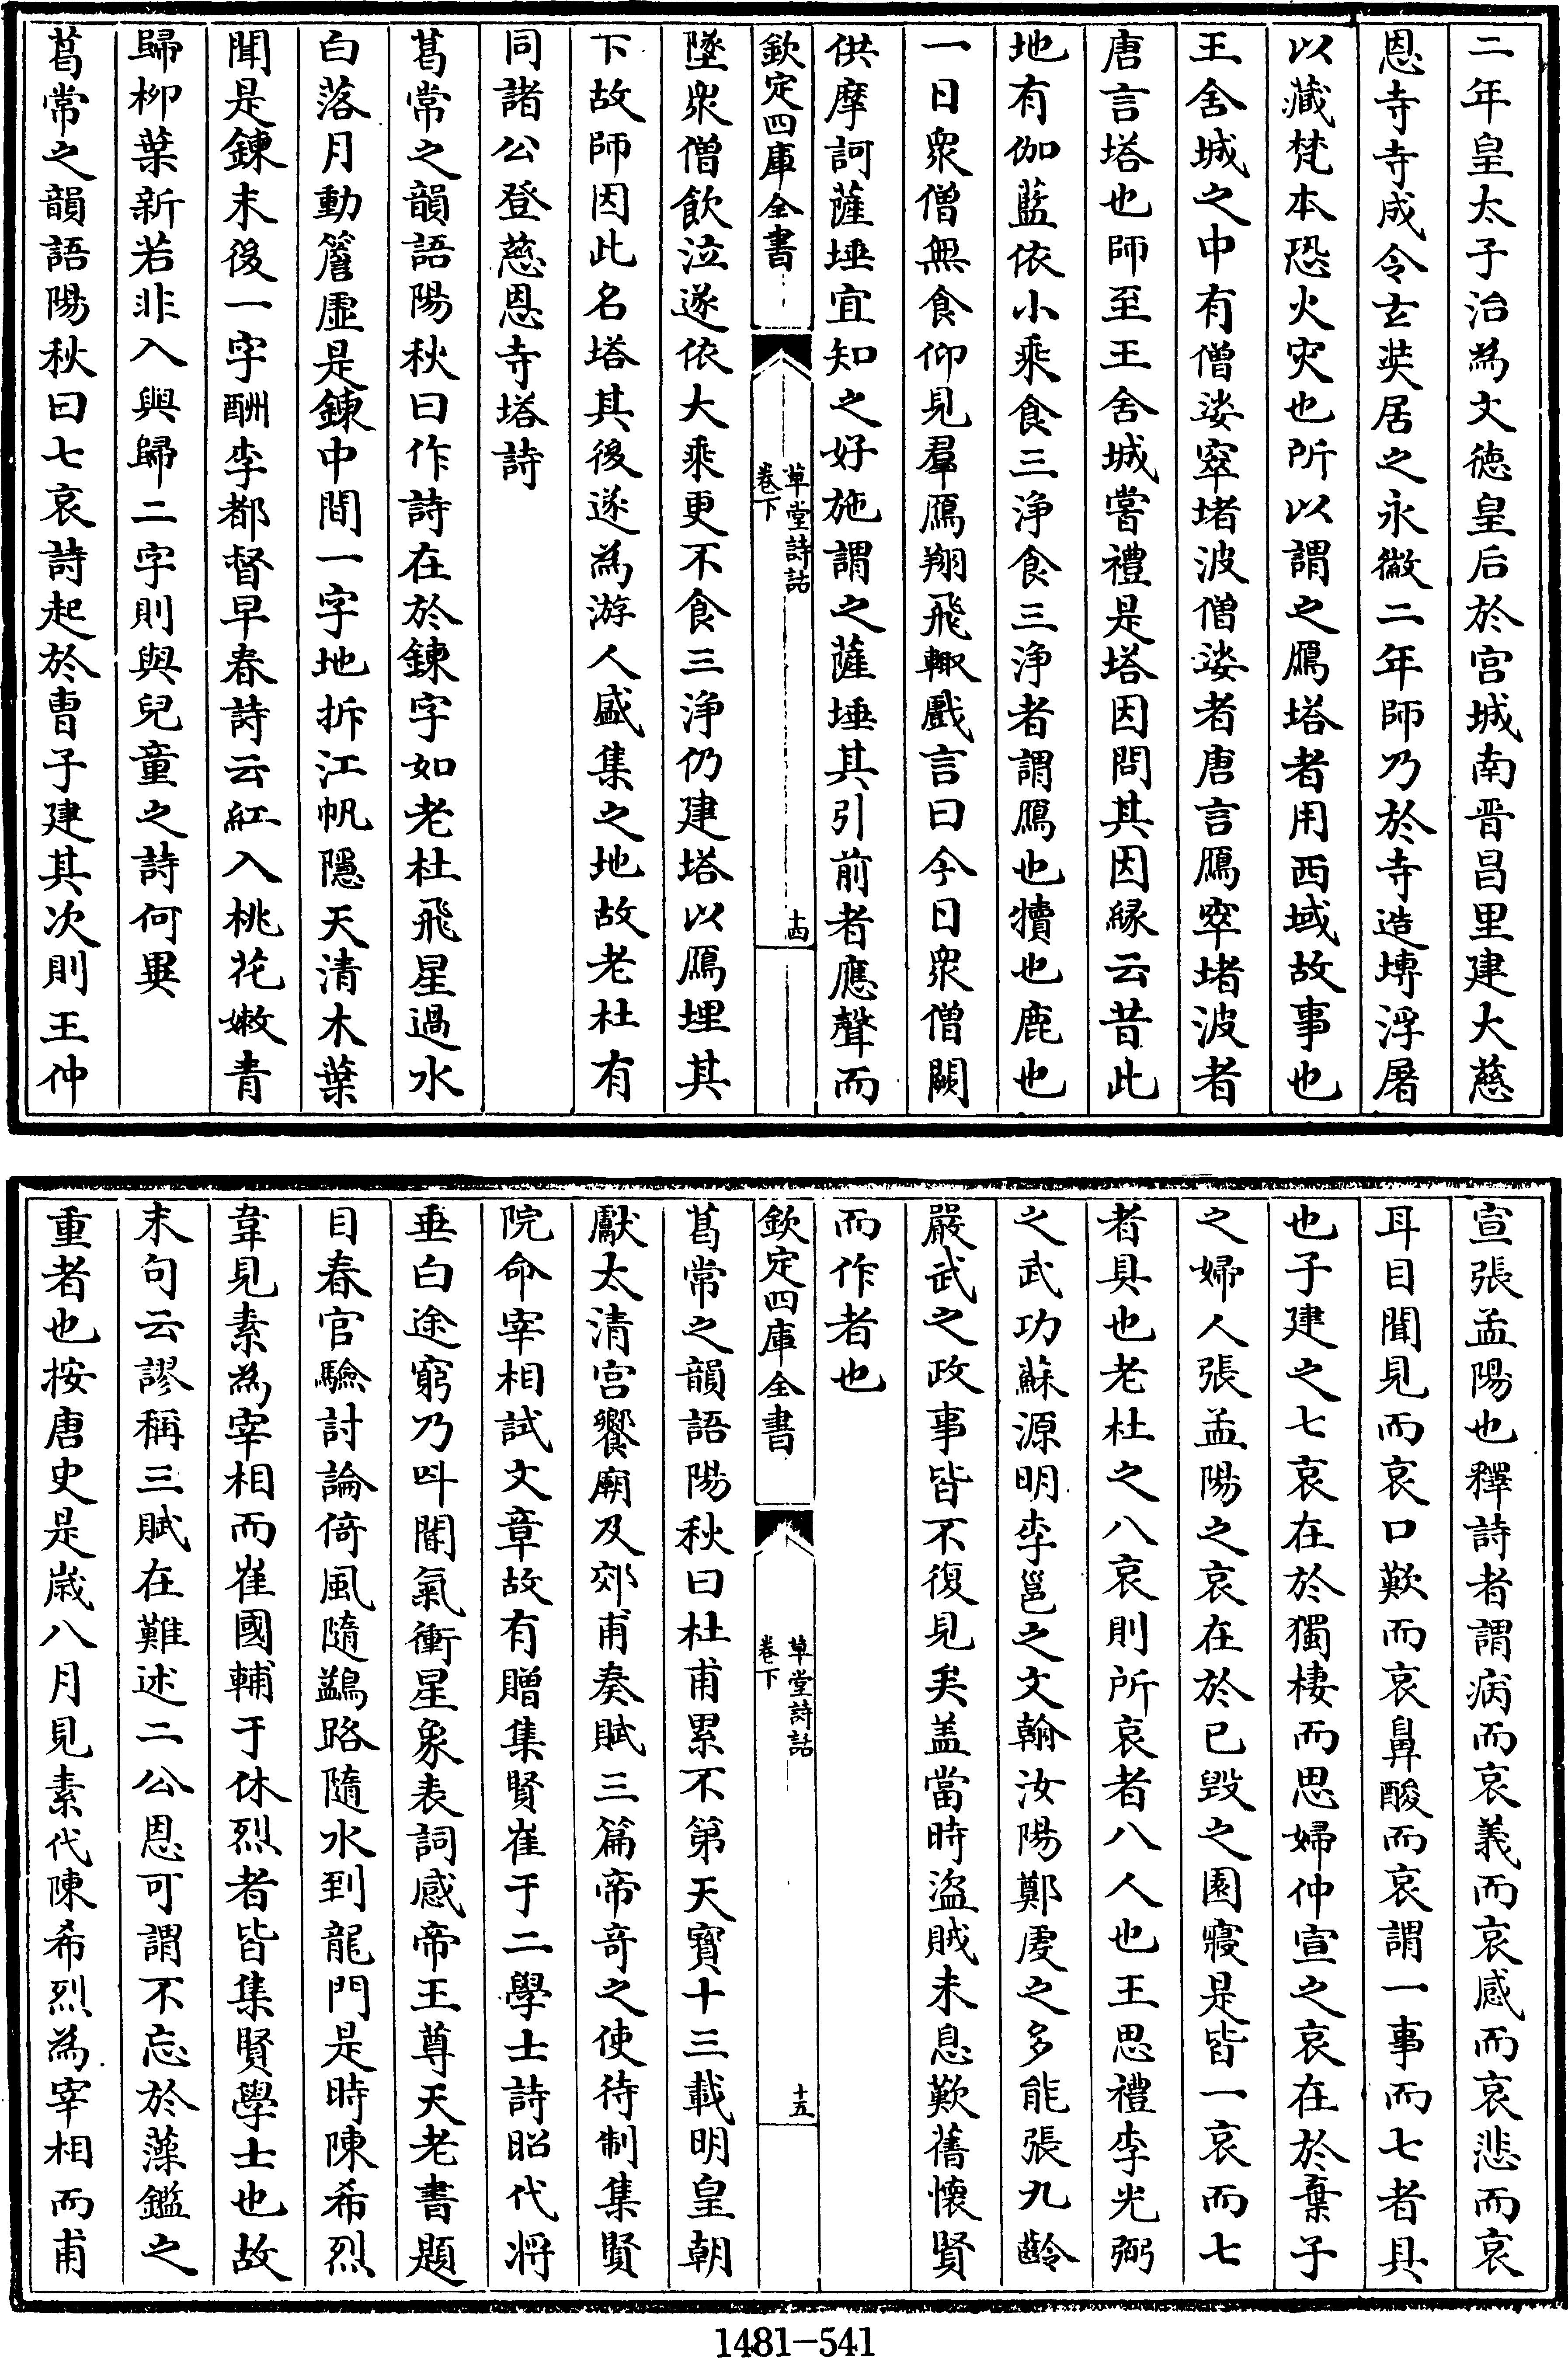 二年皇太子治為文徳皇后於宫城南晋昌里建大慈
恩寺寺成令玄奘居之永徽二年師乃於寺造塼浮屠
以藏梵本恐火灾也所以謂之鴈塔者用西域故事也
王舍城之中有僧娑窣堵波僧娑者唐言鴈窣堵波者
唐言塔也師至王舍城嘗禮是塔因問其因緣云昔此
地有伽藍依小乘食三浄食三浄者謂鴈也犢也鹿也
一日衆僧無食仰見羣鴈翔飛輙戲言曰今日衆僧闕
供摩訶薩埵宜知之好施謂之薩埵其引前者應聲而
欽定四庫全書
草堂詩話
卷下
十四
墜衆僧飲泣遂依大乘更不食三浄仍建塔以鴈埋其
下故師因此名塔其後遂為游人盛集之地故老杜有
同諸公登慈恩寺塔詩
葛常之韻語陽秋曰作詩在於鍊字如老杜飛星過水
白落月動簷虛是鍊中間一字地拆江帆隱天清木葉
聞是鍊末後一字酬李都督早春詩云紅入桃花嫩青
歸柳葉新若非入與歸二字則與兒童之詩何異
葛常之韻語陽秋曰七哀詩起於曹子建其次則王仲
宣張孟陽也釋詩者謂病而哀義而哀感而哀悲而哀
耳目聞見而哀口歎而哀鼻酸而哀謂一事而七者具
也子建之七哀在於獨棲而思婦仲宣之哀在於棄子
之婦人張孟陽之哀在於已毁之園寢是皆一哀而七
者具也老杜之八哀則所哀者八人也王思禮李光弼
之武功蘇源明李邕之文翰汝陽鄭虔之多能張九齡
嚴武之政事皆不復見矣盖當時盜賊未息歎舊懷賢
而作者也
欽定四庫全書
草堂詩話
卷下
十五
葛常之韻語陽秋曰杜甫累不第天寳十三載明皇朝
獻太清宫饗廟及郊甫奏賦三篇帝奇之使待制集賢
院命宰相試文章故有贈集賢崔于二學士詩昭代将
垂白途窮乃叫閽氣衝星象表詞感帝王尊天老書題
目春官驗討論倚風隨鷁路隨水到龍門是時陳希烈
韋見素為宰相而崔國輔于休烈者皆集賢學士也故
末句云謬稱三賦在難述二公恩可謂不忘於藻鑑之
重者也按唐史是嵗八月見素代陳希烈為宰相而甫
1481-541